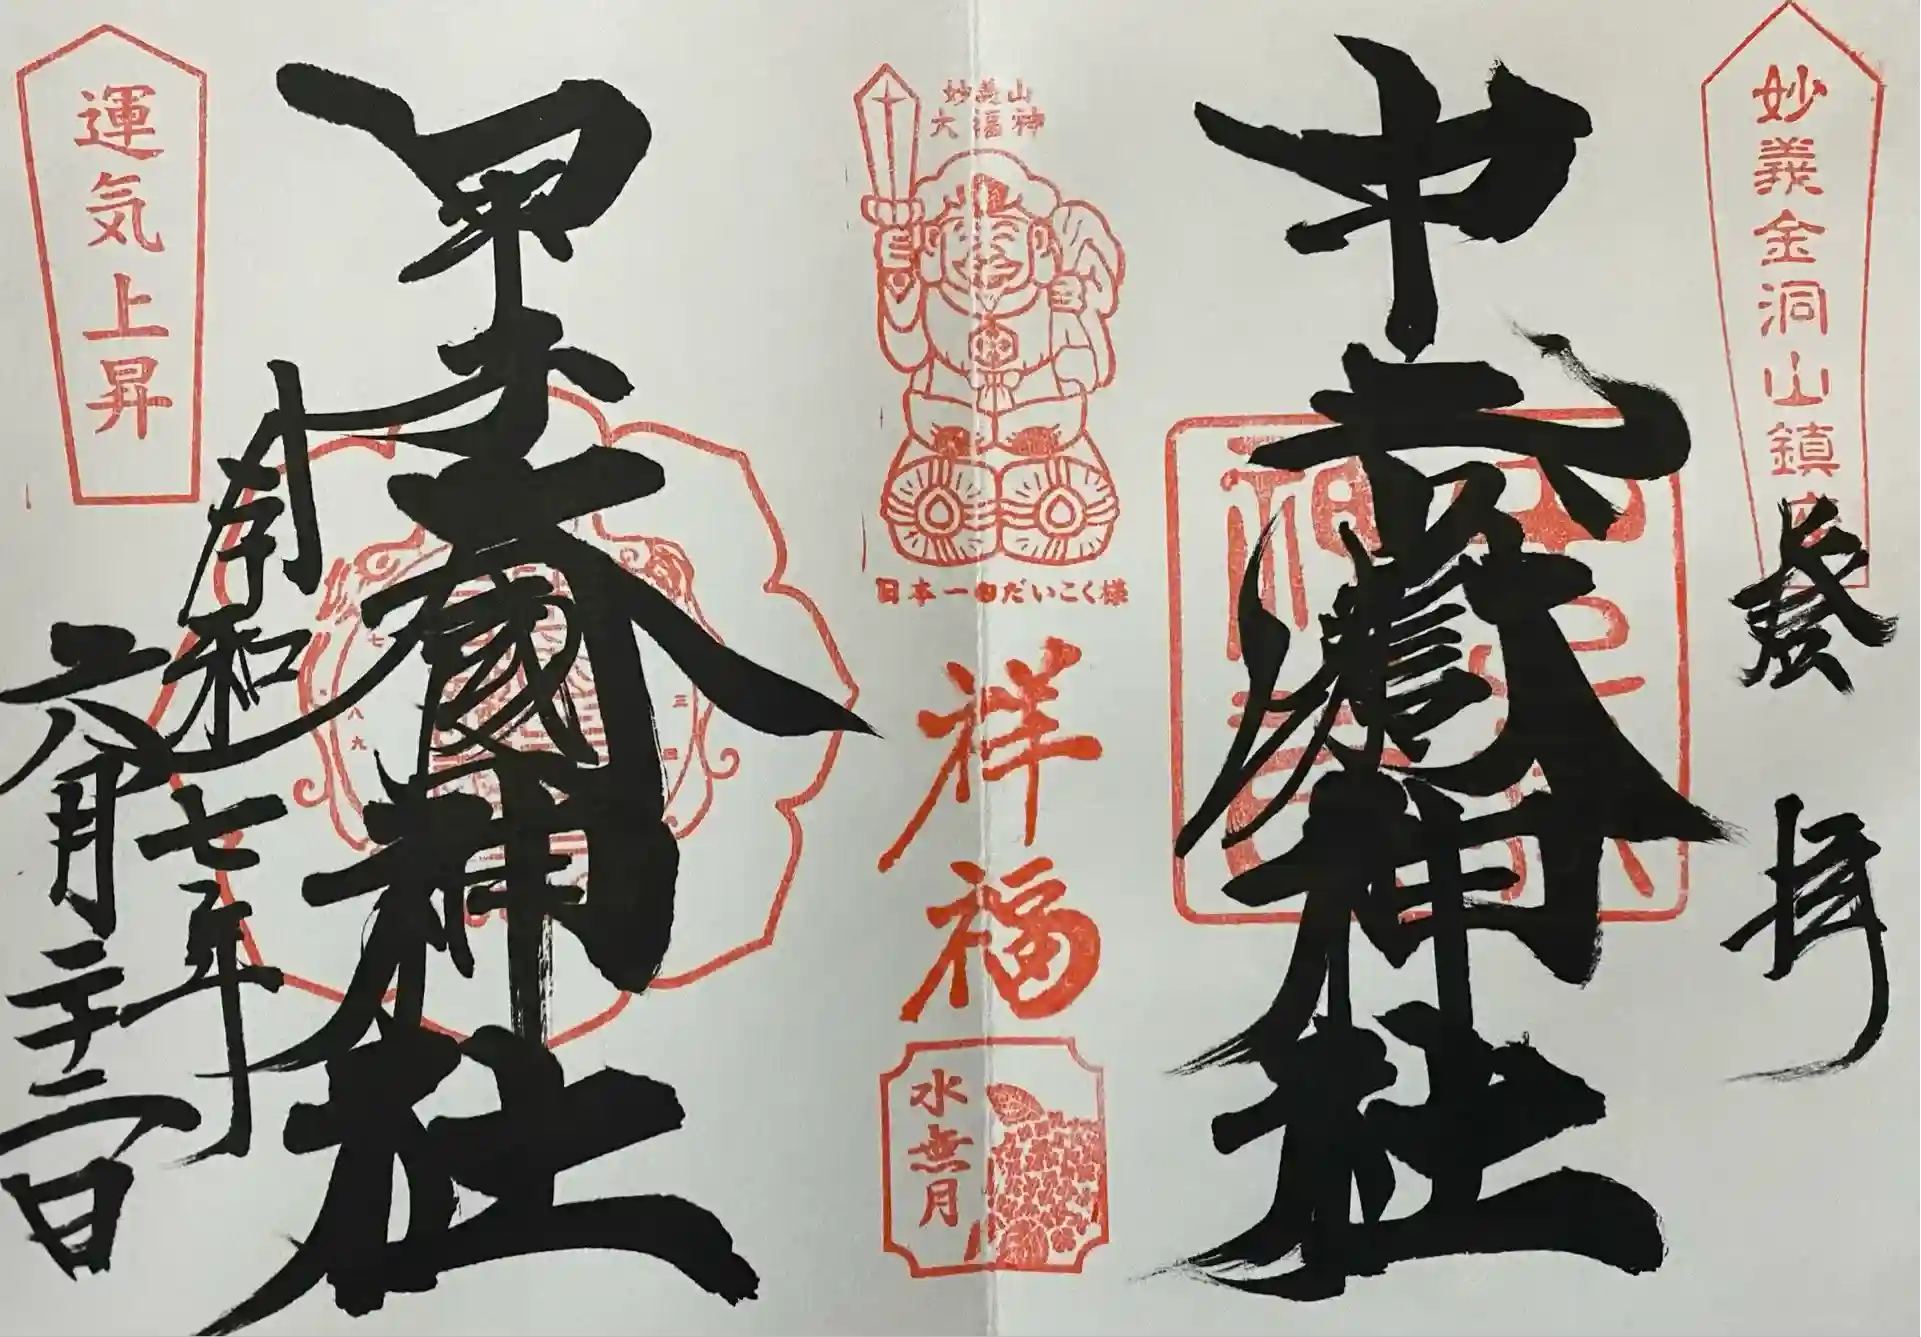 妙義金洞山鎮座
登拝
中之嶽神社
妙義山
大福神
日本一のだいこく様
祥福
水無月
甲子大國神社
令和七年
六月二十二日
運気上昇